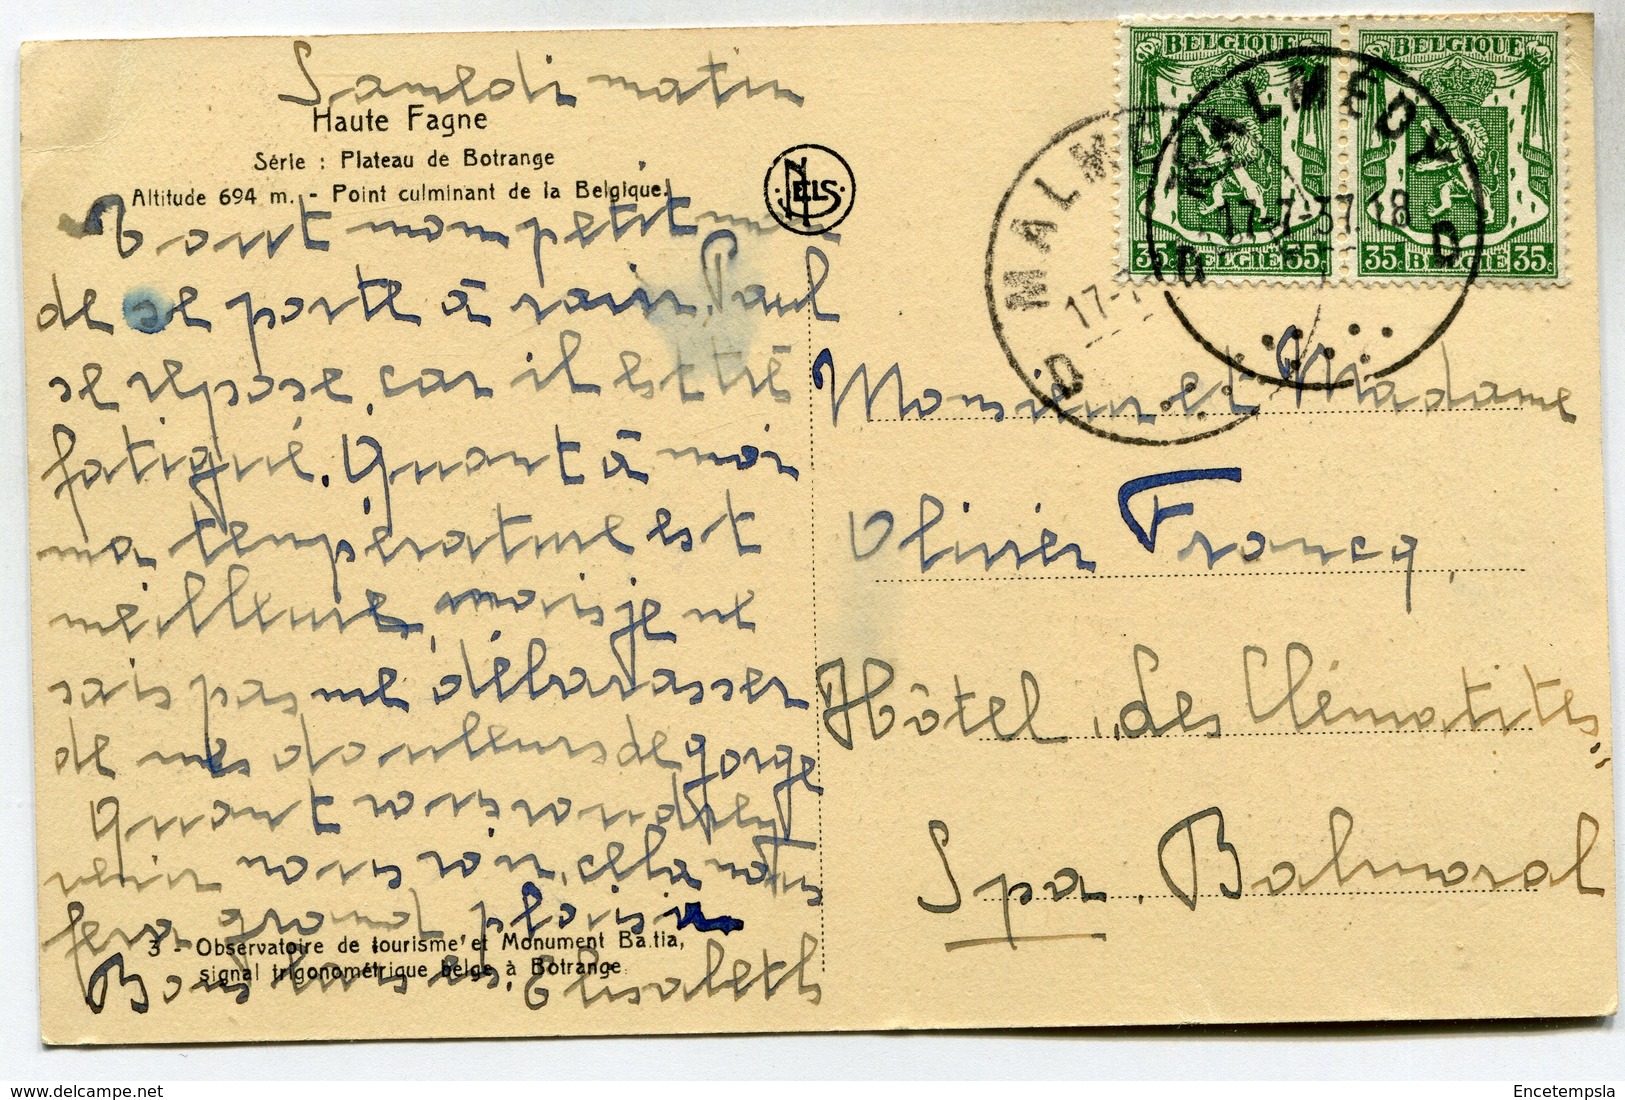 Samedi matin
Haute Fagne
Série : Plateau de Botrange
Altitude 694 m. - Point culminant de la Belgique.
NELS
Tout mon petit mon
de se porte à ravir. Paul
se repose, car il est très
fatigué. Quant à moi
ma température est
meilleure, mais je ne
sais pas me débarasser
de mes douleurs de gorge
Quant vous voudrez
venir nous voir, cela nous
fera grand plaisir
3 - Observatoire de tourisme et Monument Baltia,
signal trigonométrique belge à Botrange
Bons baisers. Elisabeth
BELGIQUE BELGIQUE
35c BELGIË 35c 35c BELGIË 35c
MALMEDY
17-7-37 18
D D
MALME
17-7
D
Monsieur et Madame
Olivier Francq,
Hôtel „des Clématites„
Spa. Balmoral
Encetempsla